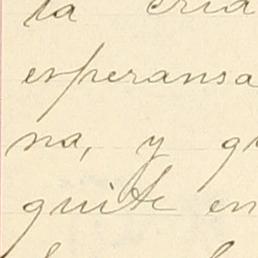 la cria
esperansa
na, y
quite en